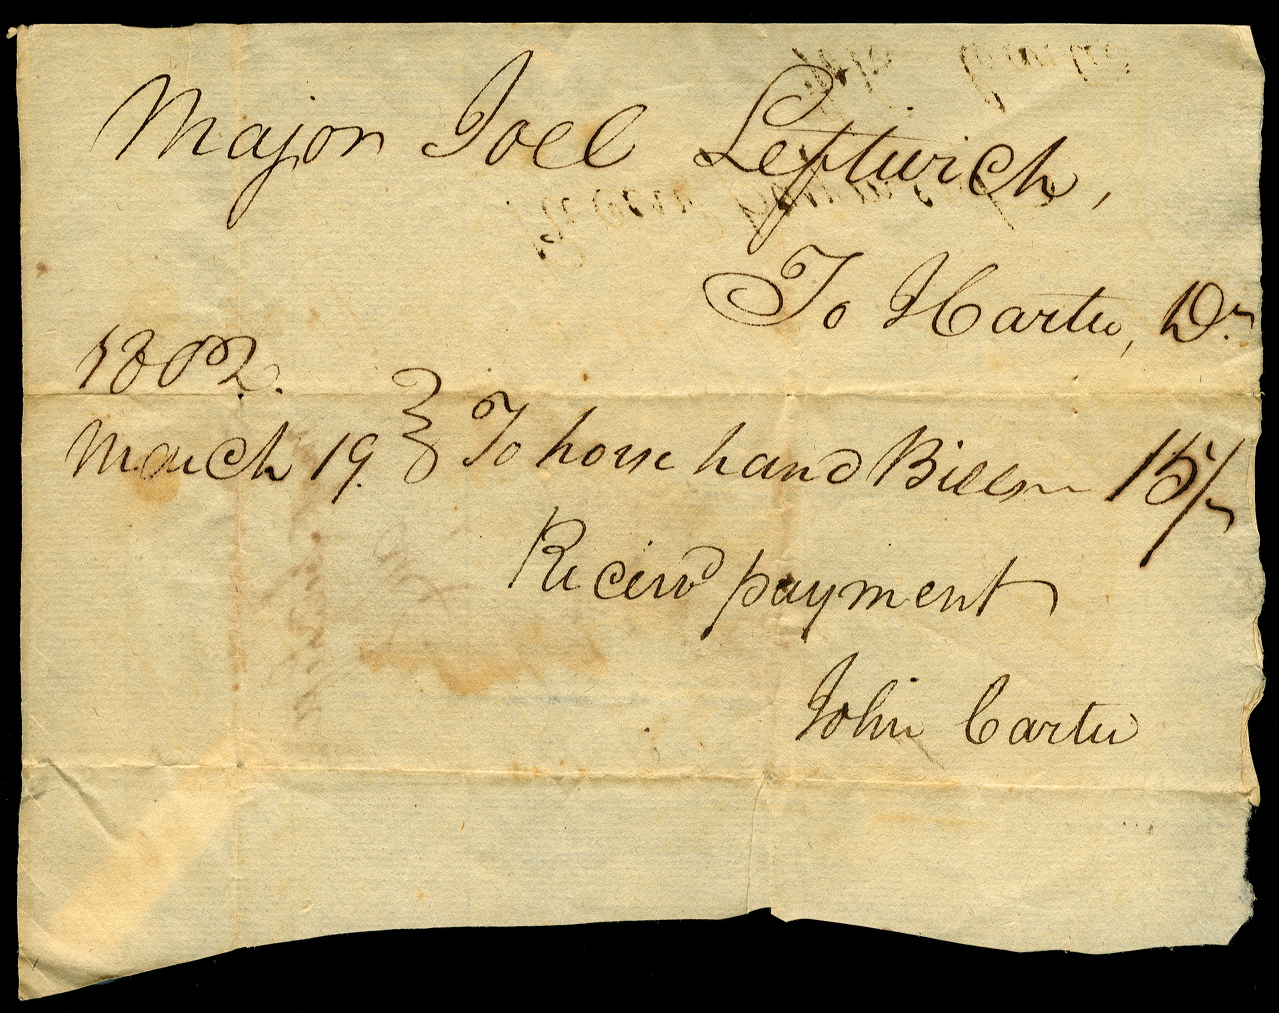 Major Joel Leftwich,
To J Carter, Dr
1802.
March 19. } To horse hand Bills 15/
Receivd payment
John Carter